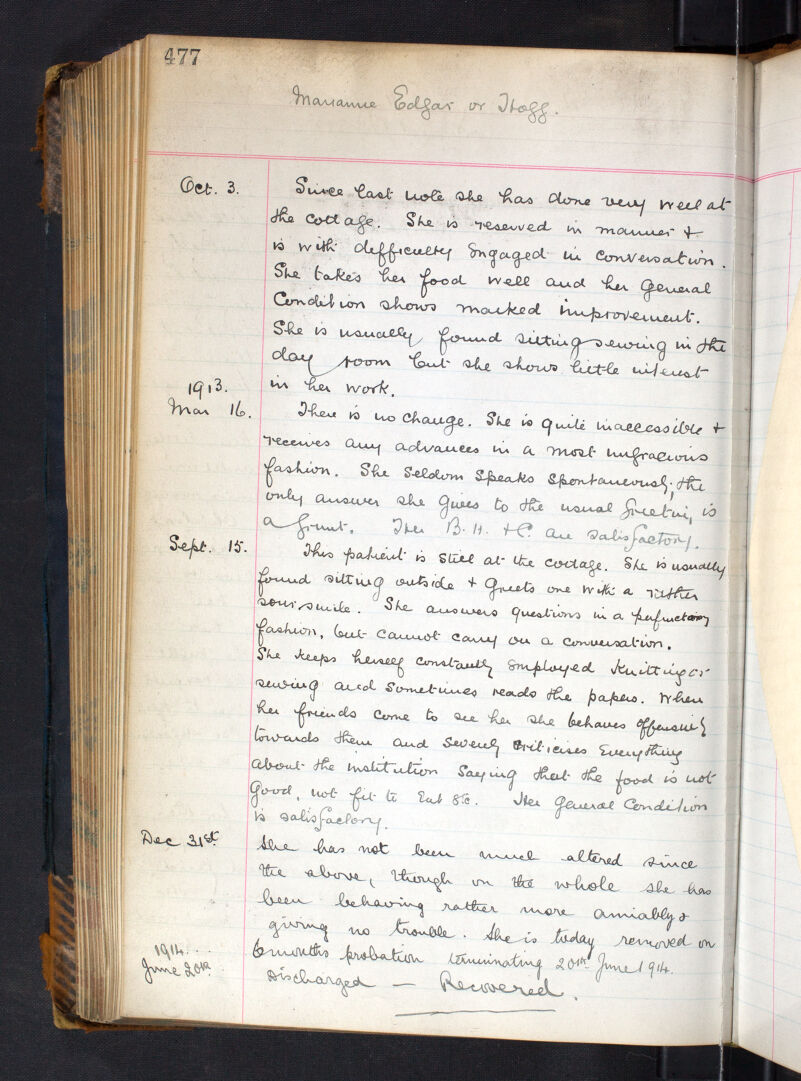 477
Marianne Edgar or Hogg.
Oct. 3. Since last note she has done very well at
the cottage. She is reserved in manner &
is with difficulty engaged in conversation.
She takes her food well and her general
Condition shows marked improvement.
She is usually found sitting sewing in the
day room but she shows little interest
in her work.
1913.
Mar 16. There is no change. She is quite inaccessible &
receives any advances in a most ungracious
fashion. She seldom speaks spontaneously; the
only answer she gives to the usual greeting is
a grunt. Her B. H. & C. are satisfactory.
Sept. 15. This patient is still at the cottage. She is usually
found sitting outside & greets one with a rather
sour smile. She answers questions in a perfunctory
fashion, but cannot carry on a conversation.
She keeps herself constantly employed knitting or
sewing and sometimes reads the papers. When
her friends come to see her she behaves offensively
towards them and severely criticises everything
about the institution saying that the food is not
good, not fit to eat &c. Her general condition
is satisfactory.
Dec 31st. She has not been much altered since
the above, though on the whole she has
been behaving rather more amiably &
giving no trouble. She is today removed on
6 months probation terminating 20th June 1914.
1914.
June 20th Discharged — Recovered.